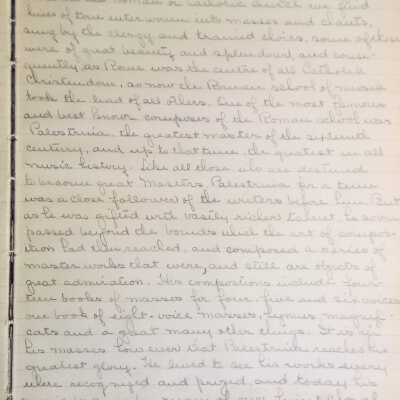 the Roman or Catholic church we find
lines of tone interwoven into masses and chants,
sung by the clergy and trained choirs, some of these
were of great beauty and splendour, and conse-
quently as Rome was the centre of all Catholic
Christendom, so now the Roman school of music
took the lead of all others. One of the most famous
and best known composers of the Roman school was
Palestrina, the greatest master of the sixteenth
century, and up to that time, the greatest in all
music history. Like all those who are destined
to become great Masters, Palestrina for a time
was a close follower of the writers before him. But
as he was gifted with vastly richer talent, he soon
passed beyond the bounds which the art of compos-
ition had then reached, and composed a series of
master works that were, and still are objects of
great admiration. His compositions include four-
teen books of masses for four, five and six voices
one book of eight-voice masses, hymns magnifi-
cats and a great many other things. It is in
his masses however that Palestrina reaches his
greatest glory. He lived to see his works every
where recognized and prized, and today his